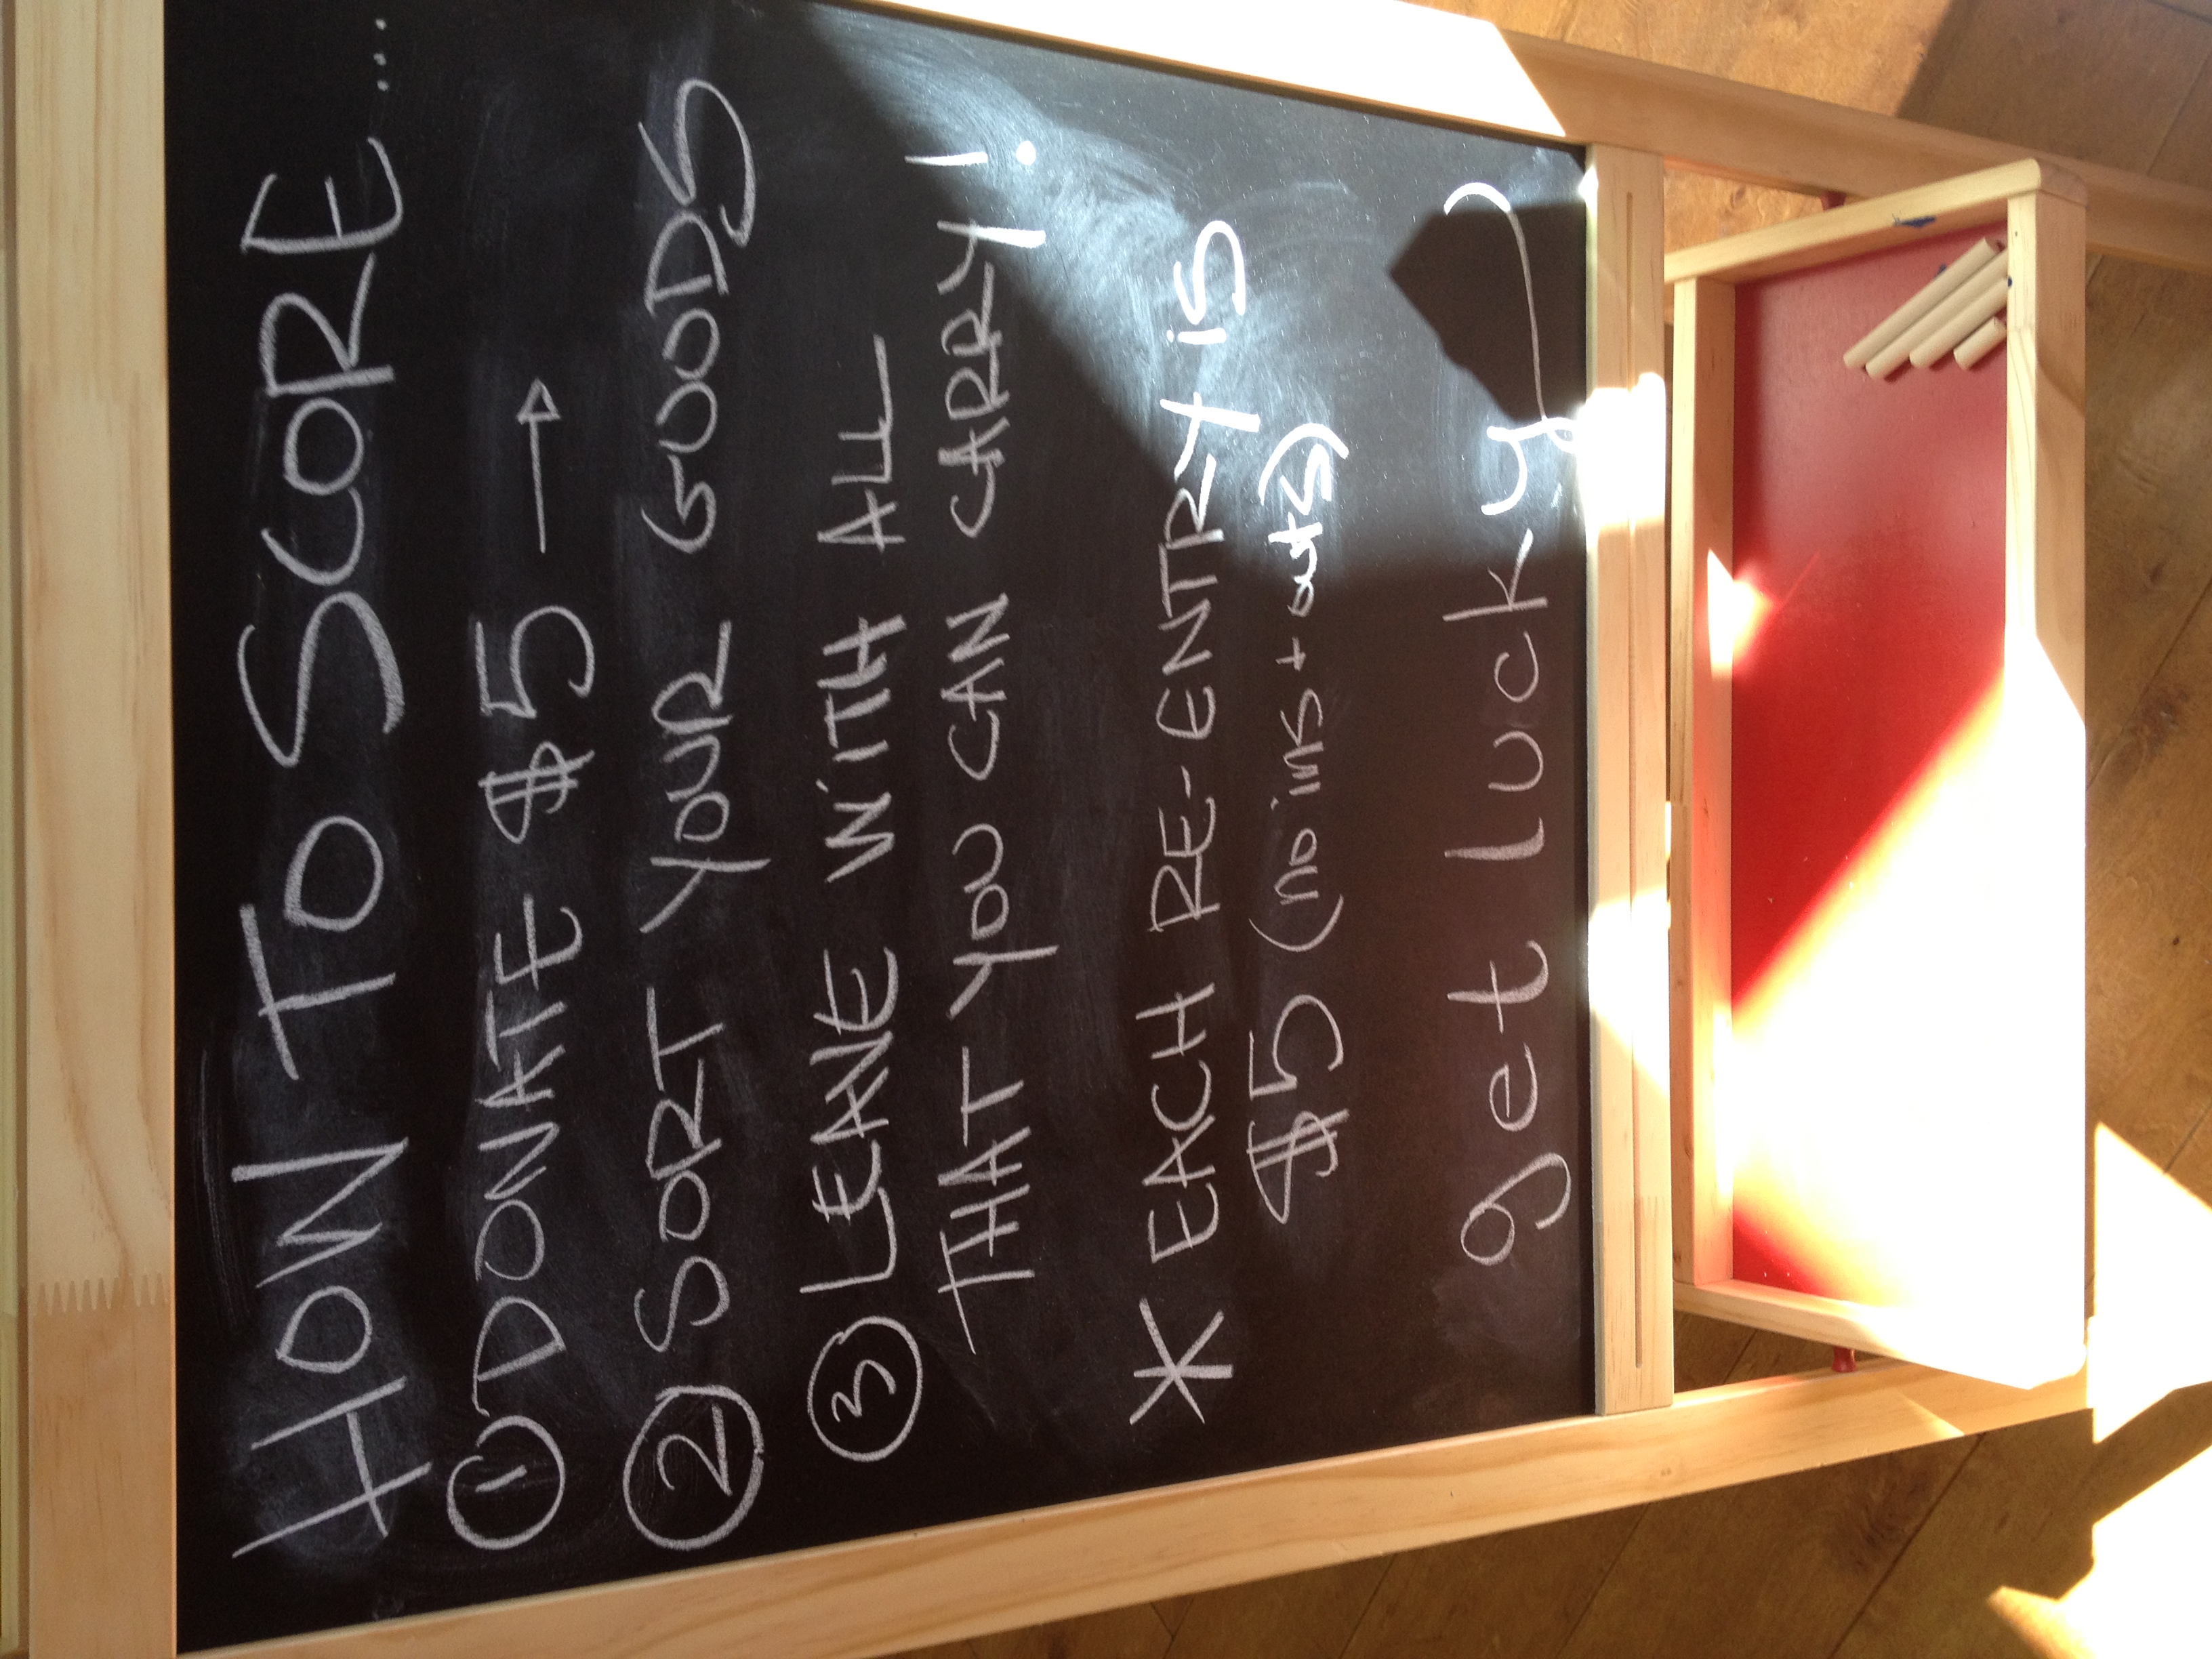 HOW TO SCORE...
① DONATE $5 →
② SORT YOUR GOODS
③ LEAVE WITH ALL
THAT YOU CAN CARRY!
* EACH RE-ENTRY is
$5 (no ins + outs)
get lucky